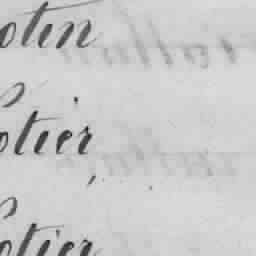 otin
otier
otier